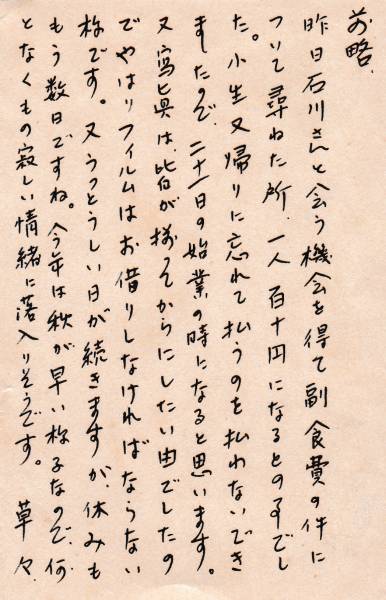 前略、
昨日石川さんと会う機会を得て副食費の件に
ついて尋ねた所、一人百十円になるとの事でし
た。小生又帰りに忘れて払うのを払わないでき
ましたので、二十一日の始業の時になると思います。
又寫眞は皆が揃ってからにしたい由でしたの
でやはりフィルムはお借りしなければならない
様です。又うっとうしい日が続きますが、休みも
もう数日ですね。今年は秋が早い様子なので、何
となくもの寂しい情緒に落入りそうです。 草々、